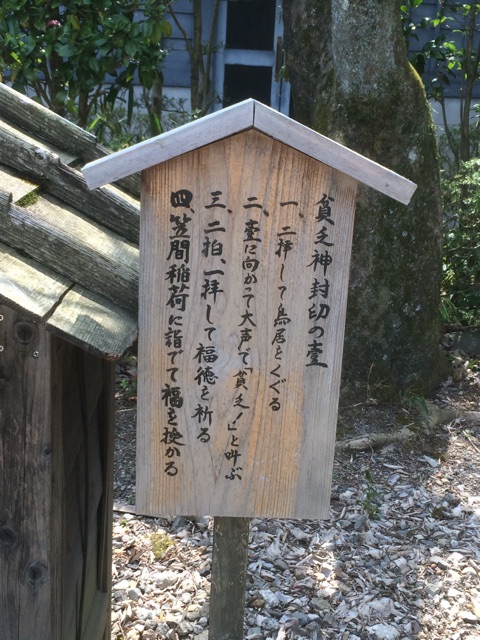 貧乏神封印の壷
一、二拝して鳥居をくぐる
二、壷に向かって大声で「貧乏！」と叫ぶ
三、二拍、一拝して福徳を祈る
四、笠間稲荷に詣でて福を授かる